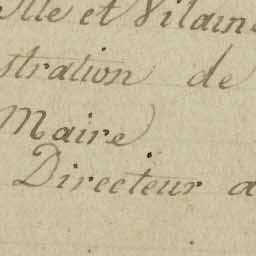 Ille et Vilaine
stration de
Maire
Directeur a